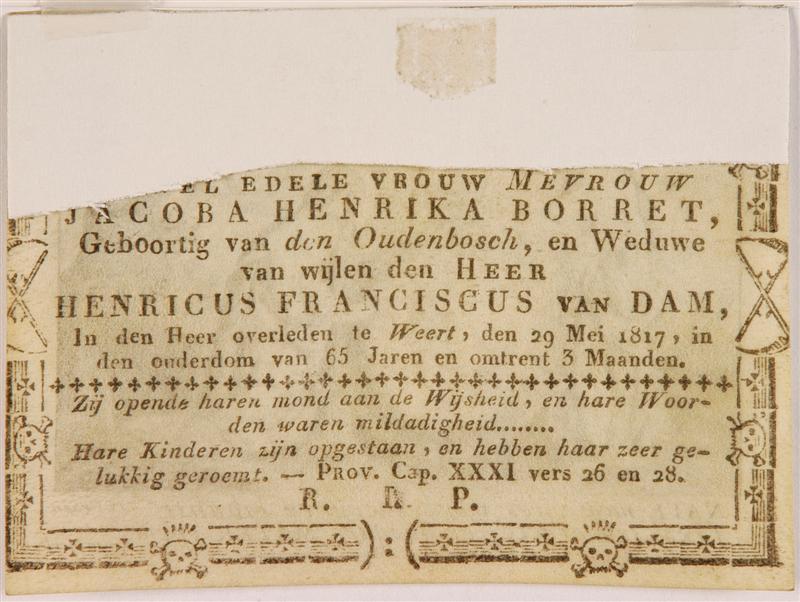 EL EDELE VROUW MEVROUW
JACOBA HENRIKA BORRET,
Geboortig van den Oudenbosch, en Weduwe
van wijlen den HEER
HENRICUS FRANCISCUS VAN DAM,
In den Heer overleden te Weert, den 29 Mei 1817, in
den ouderdom van 65 Jaren en omtrent 3 Maanden.
Zij opende haren mond aan de Wijsheid, en hare Woor-
den waren mildadigheid........
Hare Kinderen zijn opgestaan, en hebben haar zeer ge-
lukkig geroemt. — PROV. Cap. XXXI vers 26 en 28.
R. I. P.